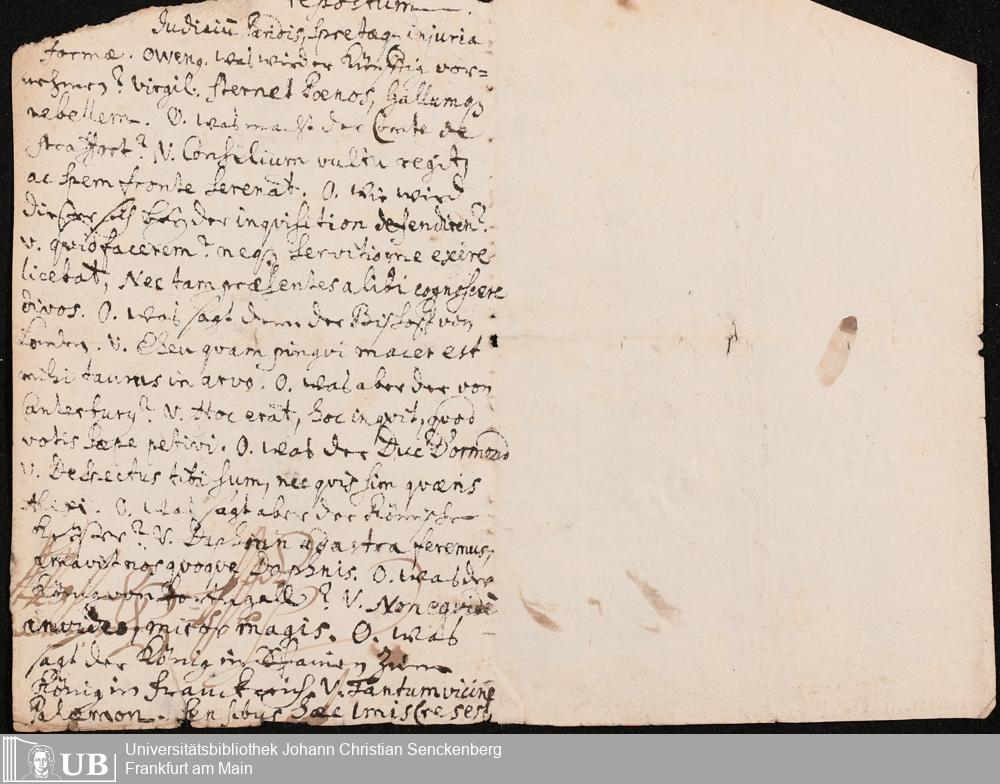 repostum.
Judiciū Paridis, spretæq. injuria
formæ. Oweng. was wird er Künfftig vor=
nehmen? Virgil. sternet Pœnos, Gallumqz
rebellem. O. was macht der Comte de
Stra ? V. Consilium vultu regit,
ac spem fronte serenat. O. wie wird
dieser sich der inquisition defendiren?
V. quid facerem? neqz servitio me exire
licebat, Nec tam præsentes alibi cognoscere
divos. O. was sagt denn der Bischoff von
Londen. V. Eheu quam pingvi macer est
mihi taurus in arvo. O. was aber der von
Canterbury? V. Hoc erat, hoc inqvit, qvod
votis sæpe petivi. O. was der Duc D'ormond
V. Despectus tibi sum, nec qvis sim quæris
Alexi. O. was sagt aber der Römische
Kaÿser? V. Daphnin ad astra feremus,
amavit nos qvoqve Daphnis. O. was der
König von Portugall? V. Non eqvidē
invideo, miror magis. O. was
sagt der König in Spanien zum
König in Franckreich. V. Tantum vicine
Palæmon. Sensibus hæc imis (res est
Universitätsbibliothek Johann Christian Senckenberg
Frankfurt am Main
UB